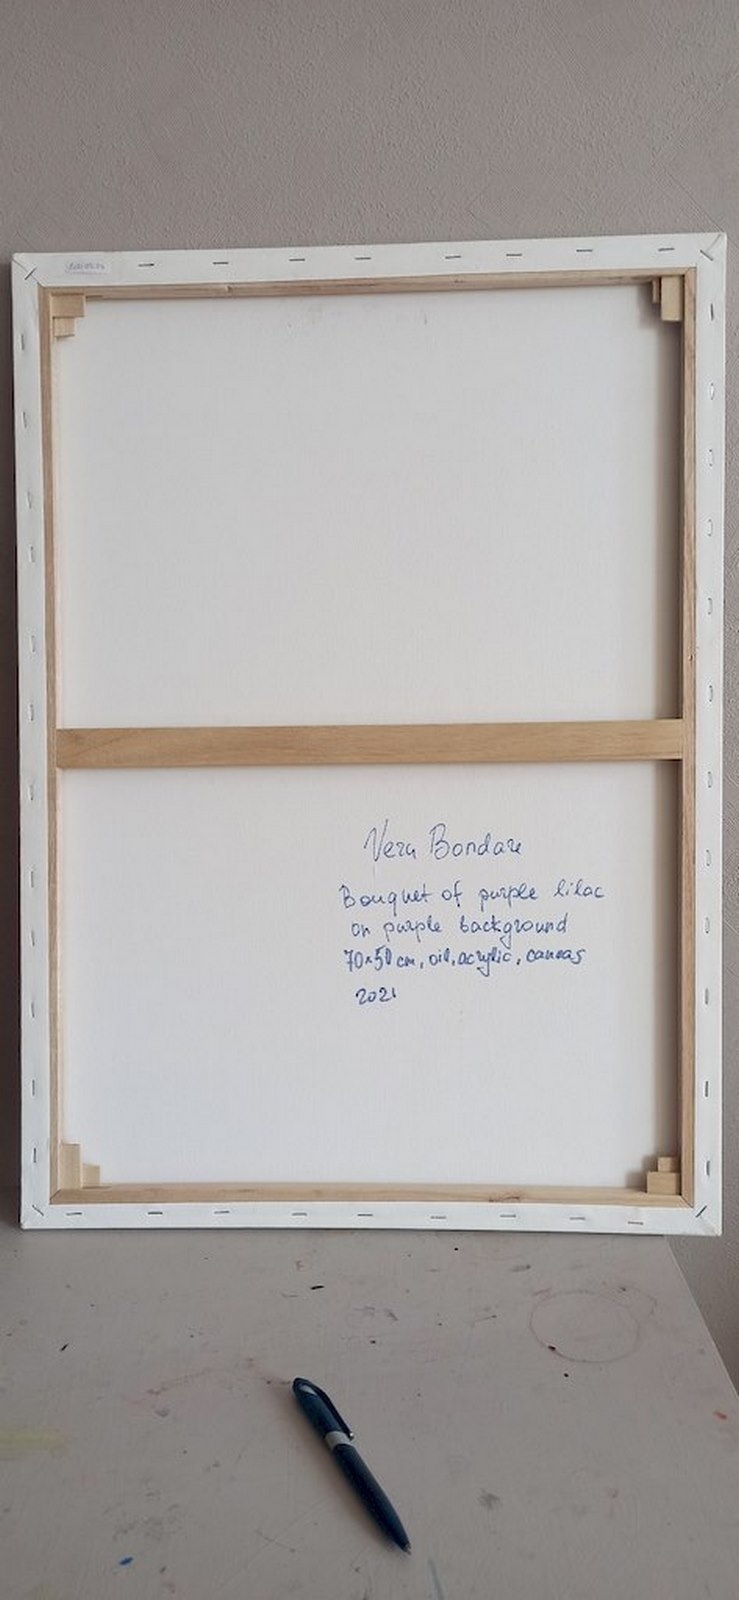 Vera Bondare
Bouquet of purple lilac
on purple background
70×50 cm, oil, acrylic, canvas
2021